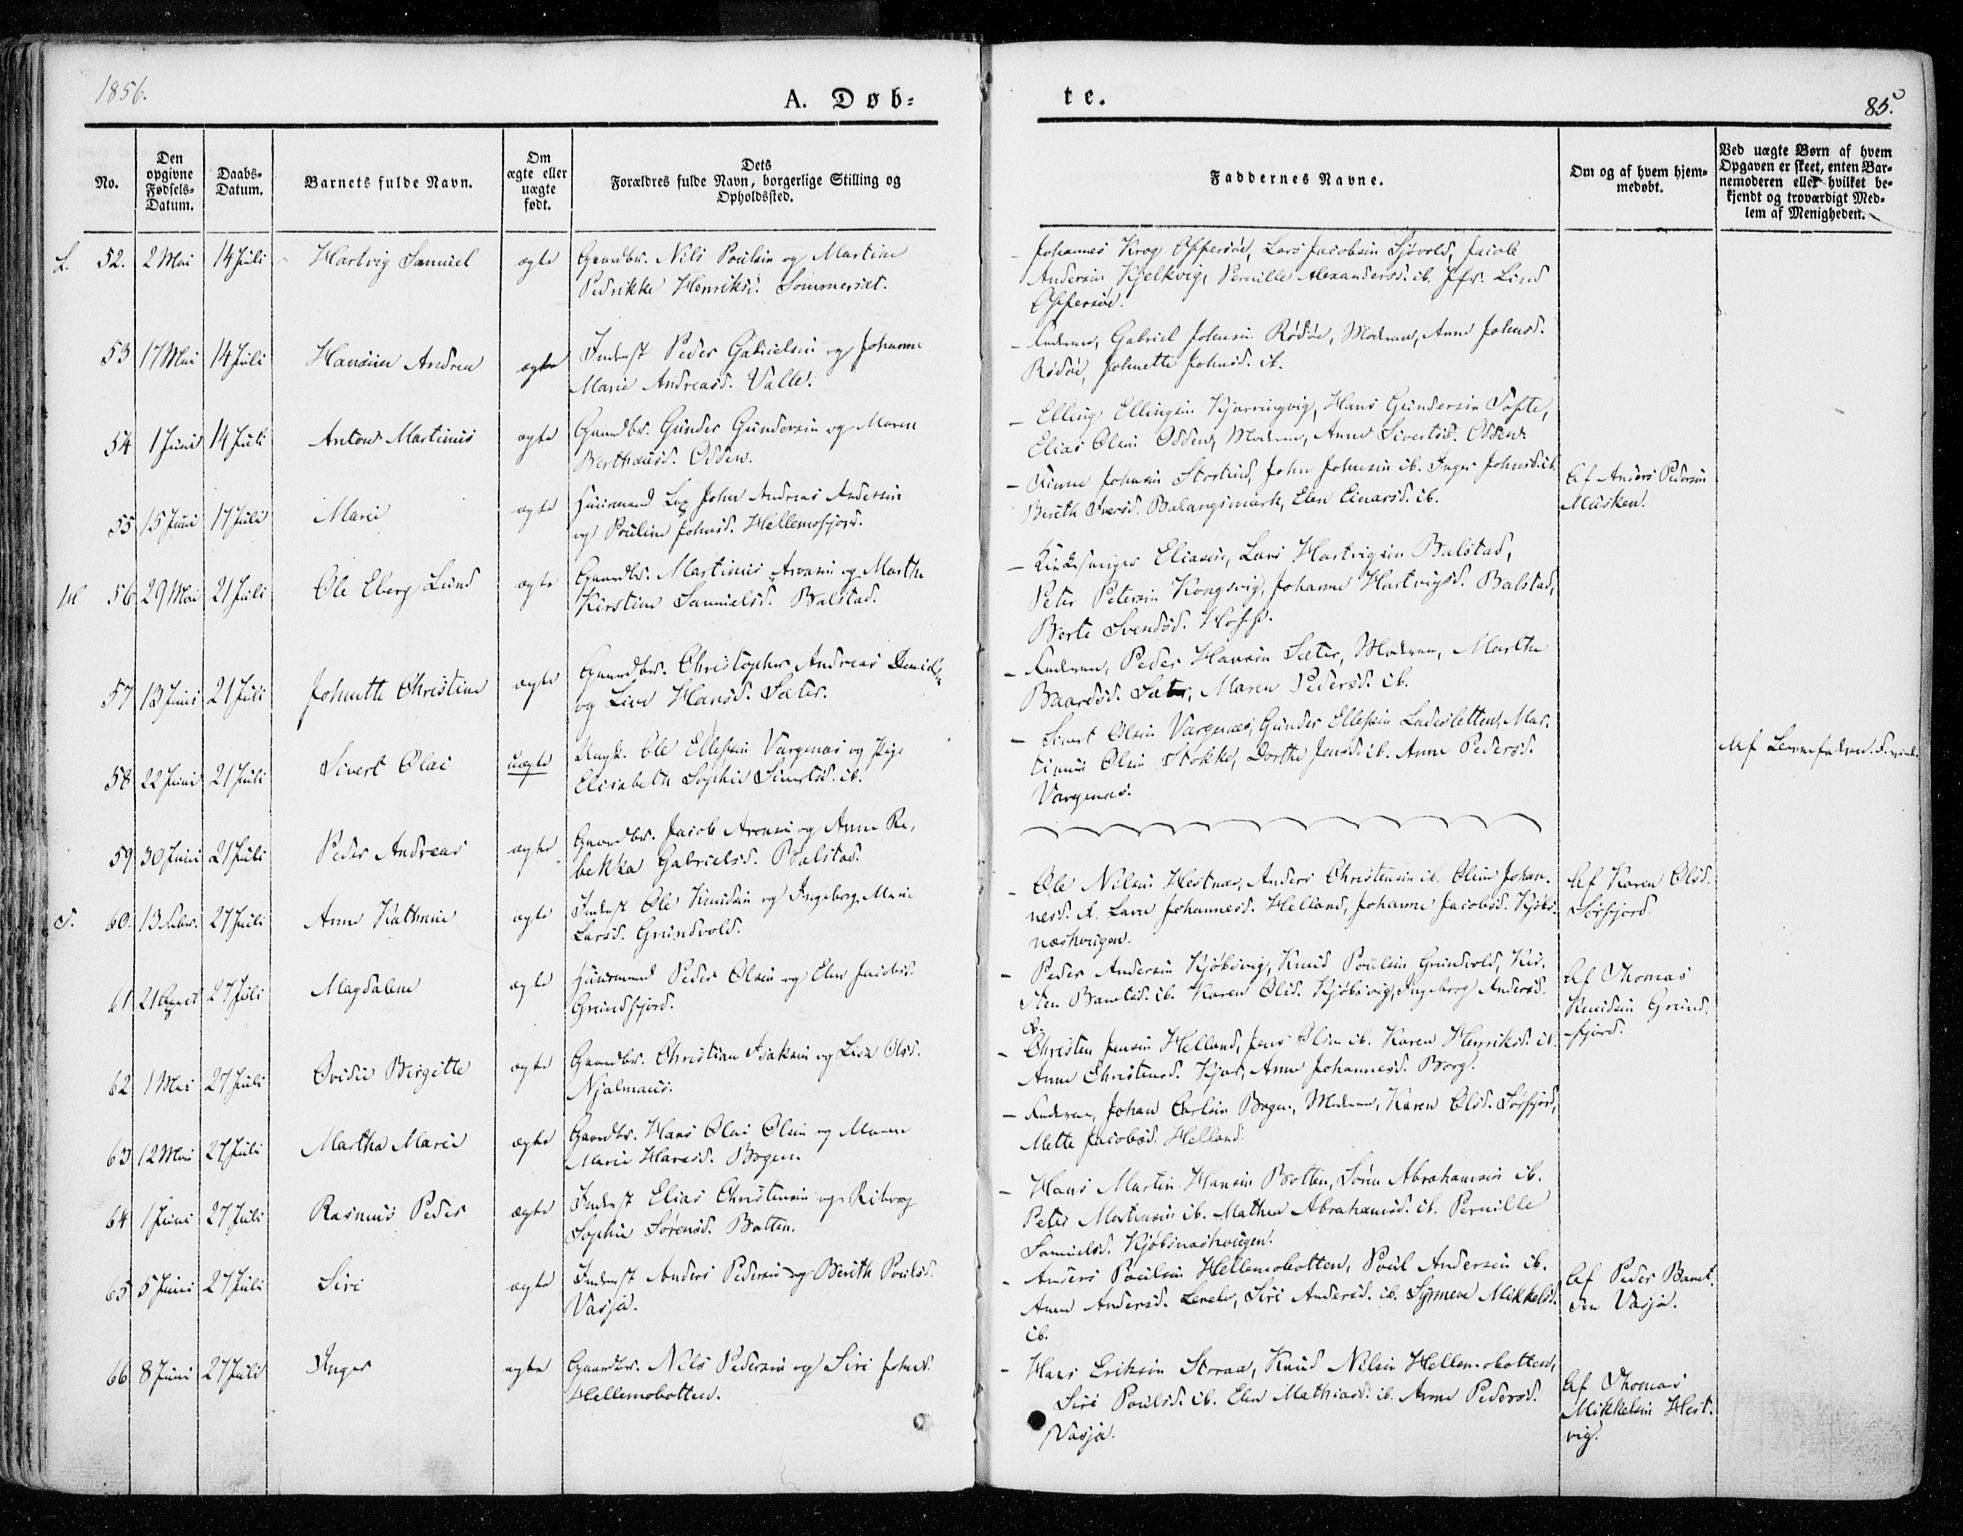 1856.
A. Døb=
te.
85.
No.
Den opgivne Fødsels-Datum.
Daabs-Datum.
Barnets fulde Navn.
Om ægte eller uægte født.
Dets Forældres fulde Navn, borgerlige Stilling og Opholdssted.
Faddernes Navne.
Om og af hvem hjemmedøbt.
Ved uægte Børn af hvem Opgaven er skeet, enten Barnemoderen eller hvilket bekjendt og troværdigt Medlem af Menigheden.
52. 2 Mai 14 Juli Hartvig Samuel ægte Gaardbr. Nils Poulsen og Martine
Pedrikke Henriksd. Sommerset.
Johannes Krog Offersøe, Lars Jacobsen Sjövold, Jacob
Andersen Kjelkvig, Pernille Alexandersd. ib. Jfr. Lind
Offersøe.
53 17 Mai 14 Juli Hansine Andrea ægte Inderst Peder Gabrielsen og Johanne
Marie Andreasd. Valle.
Faderen, Gabriel Johnsen Rödöe, Moderen, Anne Johnsd.
Rödöe, Johnette Johnsd. ib.
54 1 Juni 14 Juli Anton Martinus ægte Gaardbr. Gunder Gundersen og Maren
Bertheusd. Odden.
Elling Ellingsen Kjerringvig, Hans Gundersen Tofte,
Elias Olsen Odden, Moderen, Anne Sivertsd. Odden.
55 15 Juni 17 Juli Marie ægte Huusmand Lap John Andreas Andersen
og Pouline Johnsd. Hellemofjord.
Johnsen Storlind, John Johnsen ib. Inger Johnsd. ib.
Berith Iversd. Balangsmark, Elen Einarsd. ib.
Af Anders Pedersen
Musken.
56 29 Mai 21 Juli Ole Eberg Lund ægte Gaardbr. Martinus Aronsen og Marthe
Kirstine Samuelsd. Balstad.
Kirkesanger Eliasen, Lars Hartvigsen Balstad,
Peter Petersen Kongsvig, Johanne Hartvigsd. Balstad,
Berte Svendsd. Hoff.
57 13 Juni 21 Juli Johnette Christine ægte Gaardbr. Christopher Andreas Danielsen
og Live Hansd. Sæter.
Faderen, Peder Hansen Sæter, Moderen, Marthe
Baardsd. Sæter, Maren Pedersd. ib.
58 22 Juni 21 Juli Sivert Olai uægte Ungk. Ole Ellefsen Vargenæs og Pige
Elisabeth Sophie Simonsd. ib.
Sivert Olsen Vargenæs, Gunder Ellefsen Ladesletten, Mar-
tinus Olsen Stokke, Dorthe Jensd. ib. Anne Pedersd.
Vargenæs.
Af
59 30 Juni 21 Juli Peder Andreas ægte Gaardbr. Jacob Aronsen og Anne Re-
bekka Gabrielsd. Balstad.
60. 13 Febr. 27 Juli Anne Kathrine ægte Inderst Ole Knudsen og Ingeborg Marie
Larsd. Grundvold.
Ole Nilsen Hestnæs, Anders Christensen ib. Oline Johan-
nesd. ib. Lava Johannesd. Helland, Johanne Jacobsd. Kjöbs-
næshougen.
Af Karen Olsd.
Sörfjord.
61 21 April 27 Juli Magdalene ægte Huusmand Peder Olsen og Elen Jacobsd.
Grundfjord.
Peder Andersen Kjöbsvig, Knud Poulsen Grundvold, Kir-
sten Bentsd. ib. Karen Olsd. Kjöbsvig, Ingeborg Andersd.
ib.
Af Thomas
Knudsen Grund-
fjord.
62 1 Mai 27 Juli Ovidie Birgitte ægte Gaardbr. Christian Isaksen og Lise Olsd.
Njalmans.
Christen Jensen Helland, Jens Olsen ib. Karen Henriksd. ib.
Anne Christensd. Kjær, Anne Johannesd. Borg.
63 12 Mai 27 Juli Martha Marie ægte Gaardbr. Hans Olai Olsen og Maren
Marie Hansd. Bogen.
Faderen, Johan Carlsen Bogen, Moderen, Karen Olsd. Sörfjord,
Mette Jacobsd. Helland.
64 1 Juni 27 Juli Rasmus Peder ægte Inderst Elias Christensen og Riborg
Sophie Sørensd. Botten.
Hans Martin Hansen Botten, Søren Abrahamsen ib.
Peter Mortensen ib. Mathea Abrahamsd. ib. Pernille
Samuelsd. Kjöbsnæshougen.
65 5 Juni 27 Juli Siri ægte Inderst Anders Pedersen og Berith Poulsd.
Vasja.
Anders Poulsen Hellemobotten, Poul Andersen ib.
Anne Andersd. Siri Andersd. ib. Mikkelsd.
ib.
Af Peder Bent-
sen Vasja.
66 8 Juni 27 Juli Inger ægte Gaardbr. Nils Pedersen og Siri Johnsd.
Hellemobotten.
Hans Eriksen Storaa, Knud Nilsen Hellemobotten,
Siri Poulsd. ib. Elen Mathiasd. ib. Anne Pedersd.
Vasja.
Af Thomas
Mikkelsen Hest-
vig.